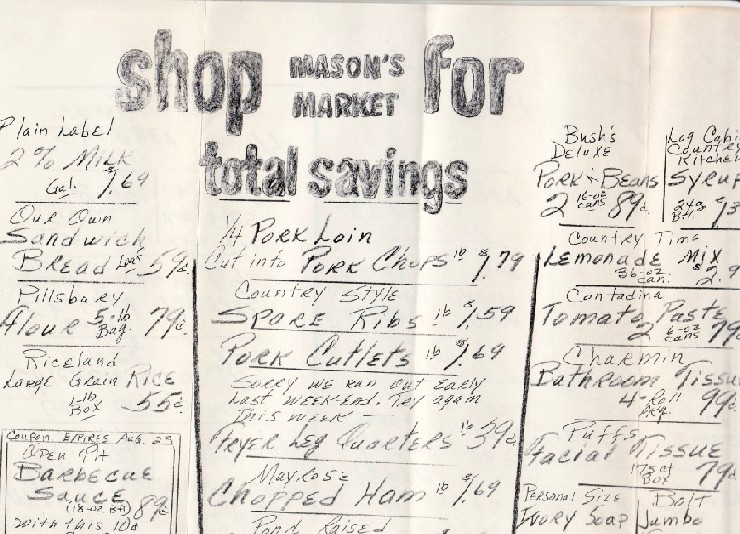 shop MASON'S MARKET for
total savings
Plain Label
2% Milk
Gal. $1.69
Our Own
Sandwich
Bread Loaf 59¢
Pillsbury
Flour 5-lb Bag. 79¢
Riceland
Large Grain Rice
1-lb Box 55¢
Coupon Expires Aug. 25
Open Pit
Barbecue
Sauce
(18-oz Btl) 89¢
with this 10¢
1/4 Pork Loin
Cut into Pork Chops lb $1.79
Country Style
Spare Ribs lb $1.59
Pork Cutlets lb $1.69
Sorry we ran out early
last week-end. Try again
this week -
Fryer Leg Quarters lb 39¢
Mayrose
Chopped Ham lb $1.69
Pond Raised
Bush's
Deluxe
Pork & Beans
2 16-oz cans 89¢
Log Cabi
Country
Kitchen
Syrup
24oz Btl $1.3
Country Time
Lemonade Mix
36-oz. can. $2.9
Contadina
Tomato Paste
2 6-oz cans 79¢
Charmin
Bathroom Tissu
4-Roll Pkg. 99¢
Puffs
Facial Tissue
175 ct Box 79¢
Personal Size
Ivory Soap
Bolt
Jumbo